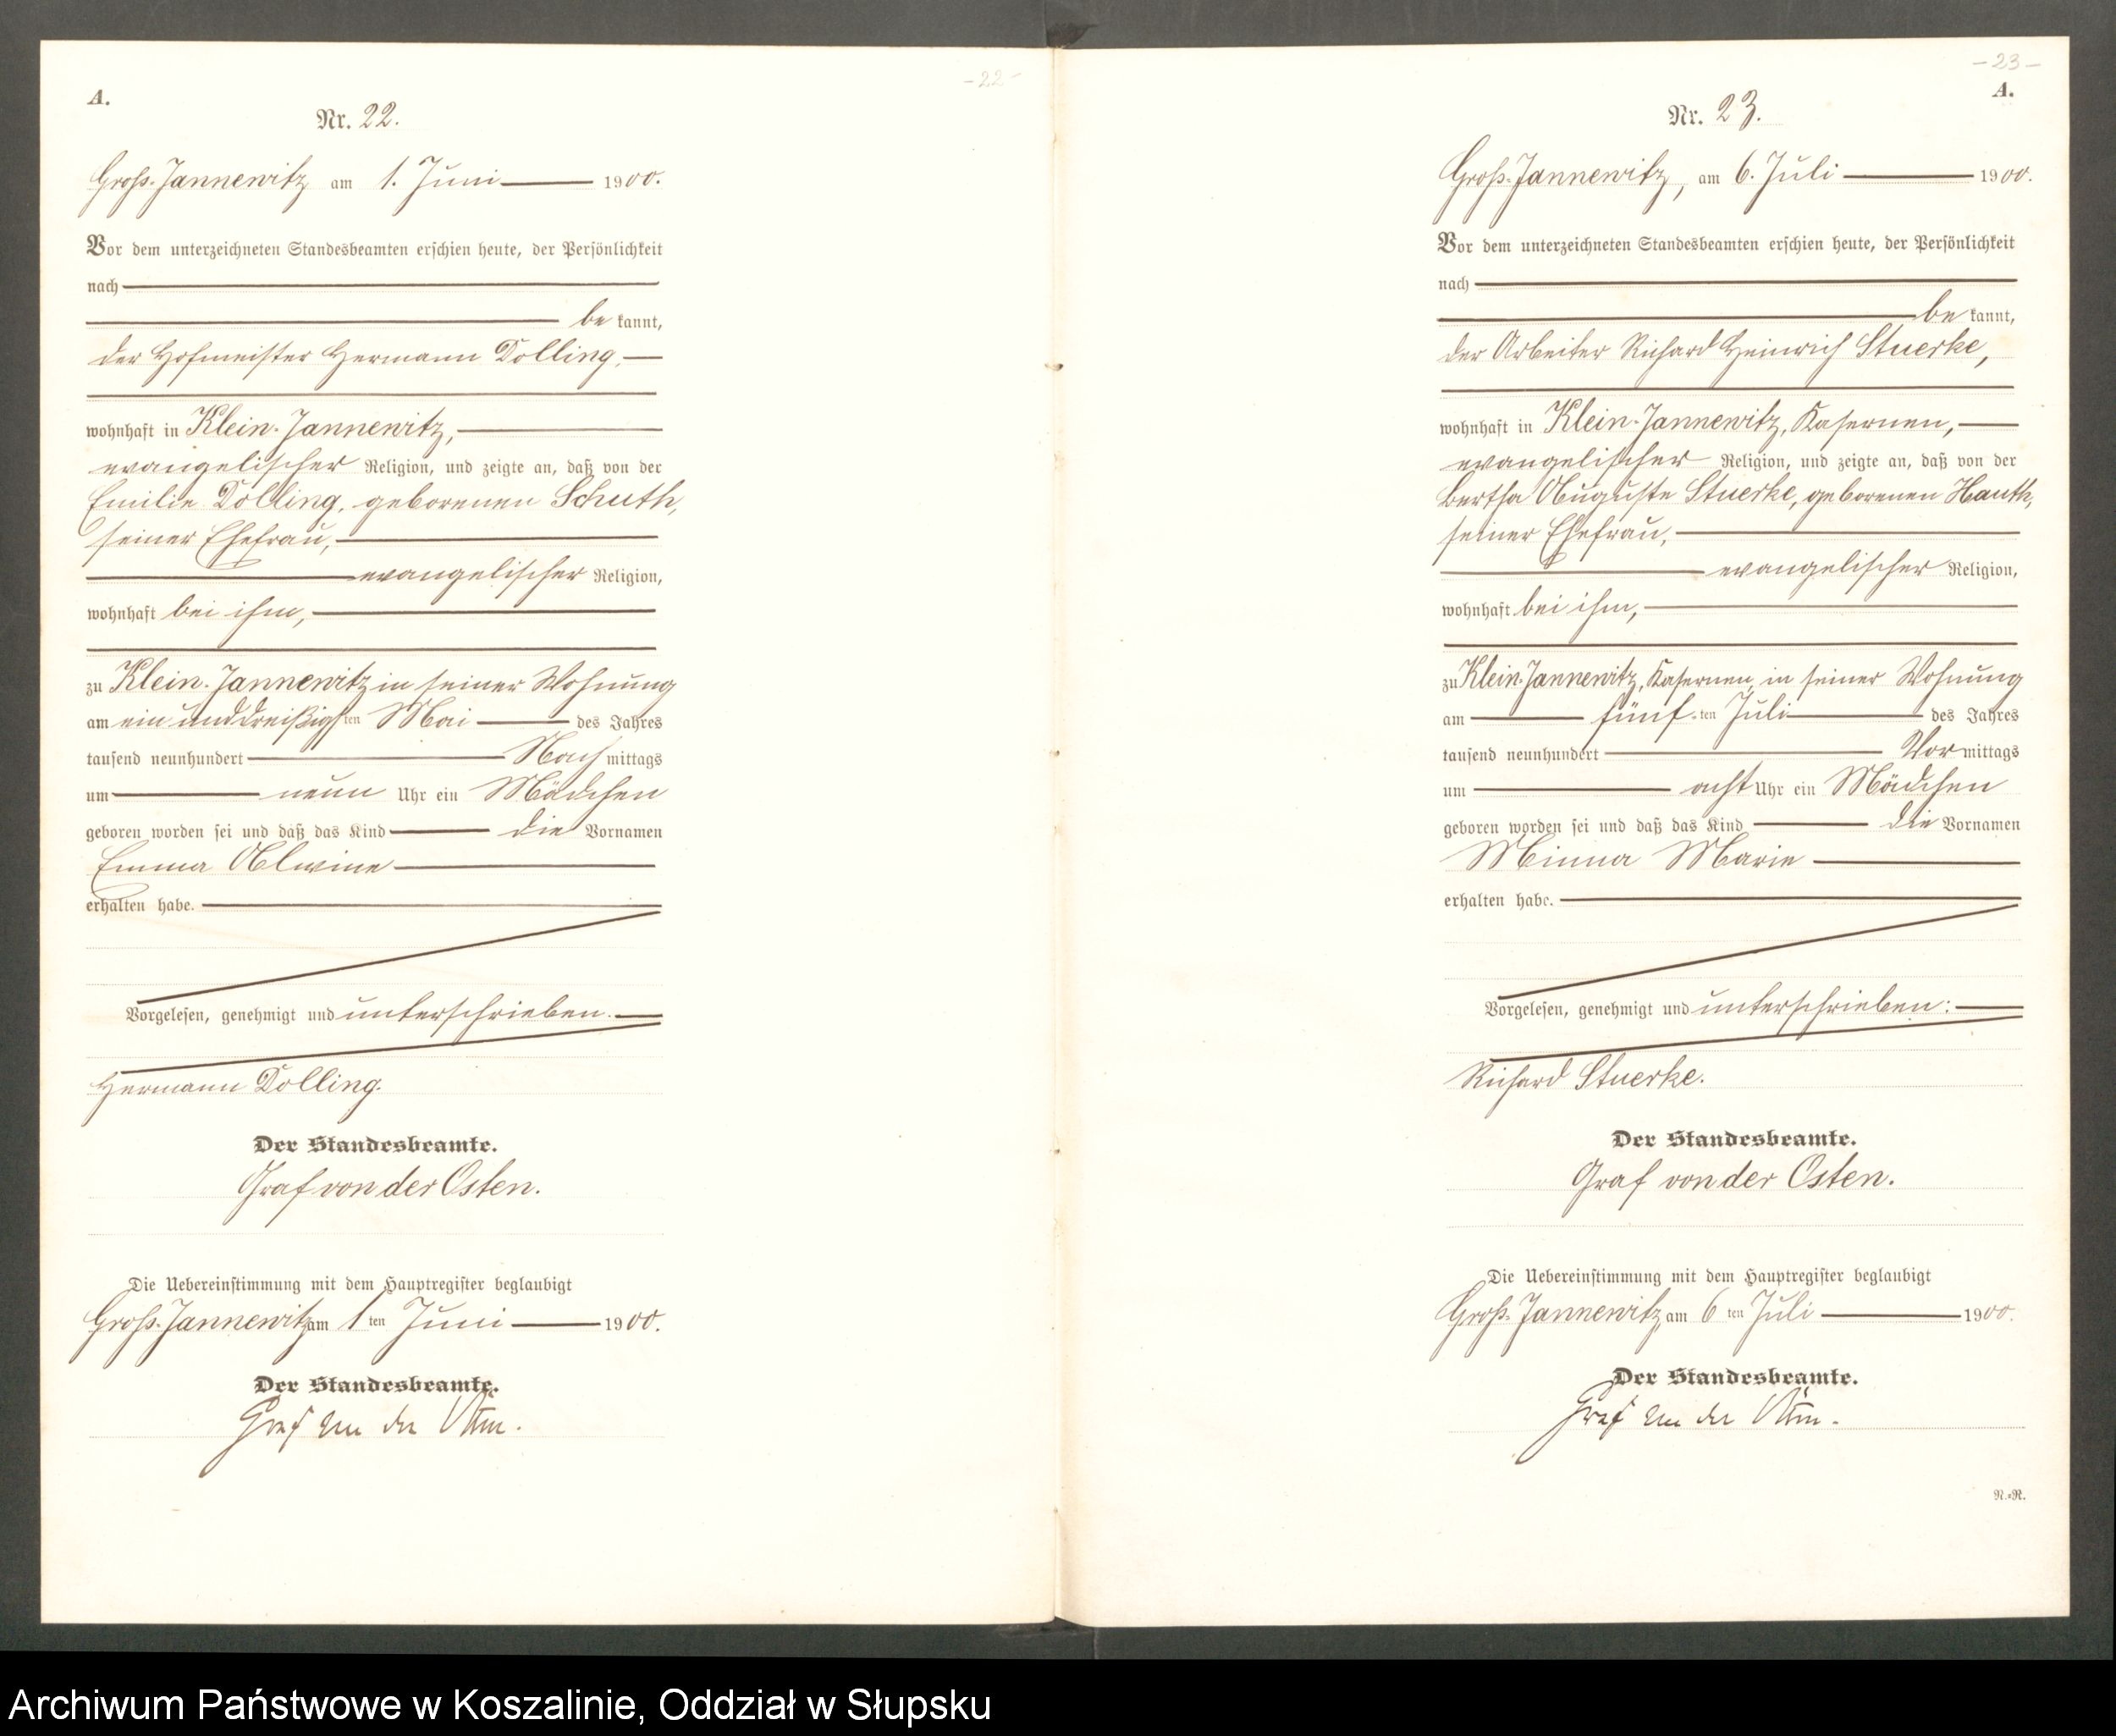 - 22 -
A.
Nr. 22.
Groß-Jannewitz am 1. Juni 1900.
Vor dem unterzeichneten Standesbeamten erschien heute, der Persönlichkeit
nach
be kannt,
der Hofmeister Hermann Dolling,
wohnhaft in Klein-Jannewitz,
evangelischer Religion, und zeigte an, daß von der
Emilie Dolling, geborenen Schuth,
seiner Ehefrau,
evangelischer Religion,
wohnhaft bei ihm,
zu Klein-Jannewitz in seiner Wohnung
am ein und dreißigsten Mai des Jahres
tausend neunhundert Nachmittags
um neun Uhr ein Mädchen
geboren worden sei und daß das Kind die Vornamen
Emma Alwine
erhalten habe.
Vorgelesen, genehmigt und unterschrieben.
Hermann Dolling.
Der Standesbeamte.
Graf von der Osten.
Die Uebereinstimmung mit dem Hauptregister beglaubigt
Groß-Jannewitz am 1 ten Juni 1900.
Der Standesbeamte.
Graf von der Osten.
- 23 -
A.
Nr. 23.
Groß-Jannewitz, am 6. Juli 1900.
Vor dem unterzeichneten Standesbeamten erschien heute, der Persönlichkeit
nach
be kannt,
der Arbeiter Richard Heinrich Stuerke,
wohnhaft in Klein-Jannewitz, Kasernen,
evangelischer Religion, und zeigte an, daß von der
Bertha Auguste Stuerke, geborenen Hauth,
seiner Ehefrau,
evangelischer Religion,
wohnhaft bei ihm,
zu Klein-Jannewitz, Kasernen, in seiner Wohnung
am fünf-ten Juli des Jahres
tausend neunhundert Vormittags
um acht Uhr ein Mädchen
geboren worden sei und daß das Kind die Vornamen
Minna Marie
erhalten habe.
Vorgelesen, genehmigt und unterschrieben:
Richard Stuerke.
Der Standesbeamte.
Graf von der Osten.
Die Uebereinstimmung mit dem Hauptregister beglaubigt
Groß-Jannewitz, am 6 ten Juli 1900.
Der Standesbeamte.
Graf von der Osten.
N.=R.
Archiwum Państwowe w Koszalinie, Oddział w Słupsku